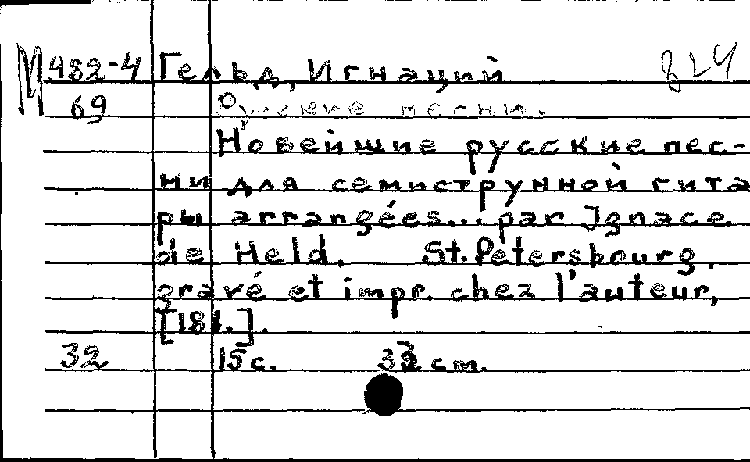 М 982-4 Гельд, Игнаций 824
69 Русские песни.
Новейшие русские пес-
ни для семиструнной гита
ры arrangées... par Ignace
de Held. St. Petersbourg,
gravé et impr. chez l'auteur,
[181.].
32 15 с. 32 cm.